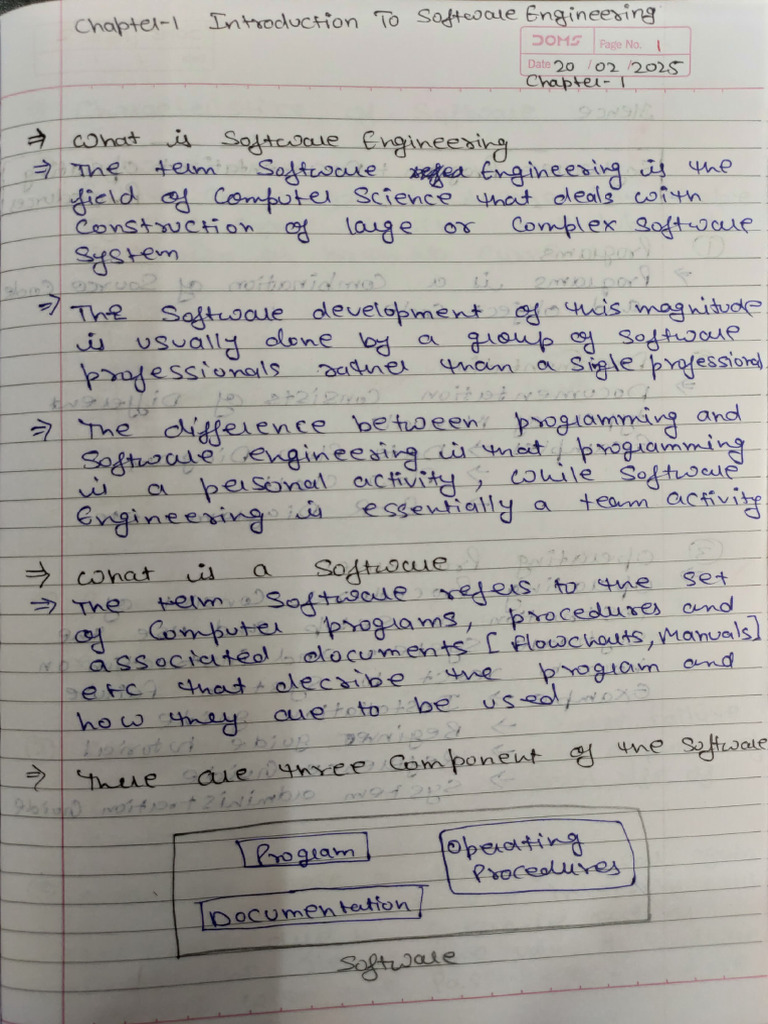 Chapter-1 Introduction To Software Engineering
DOMS Page No. 1
Date 20 / 02 / 2025
Chapter-1
⇒ What is Software Engineering
⇒ The term Software Engineering is the
field of Computer Science that deals with
Construction of large or Complex Software
System
⇒ The Software development of this magnitude
is usually done by a group of software
professionals rather than a single professional
⇒ The difference between programming and
Software engineering is that programming
is a personal activity, while Software
Engineering is essentially a team activity
⇒ What is a Software
⇒ The term Software refers to the set
of Computer programs, procedures and
associated documents [flowcharts, Manuals]
etc that decribe the program and
how they are to be used,
⇒ There are three Component of the Software
Program
Operating
Procedures
Documentation
Software